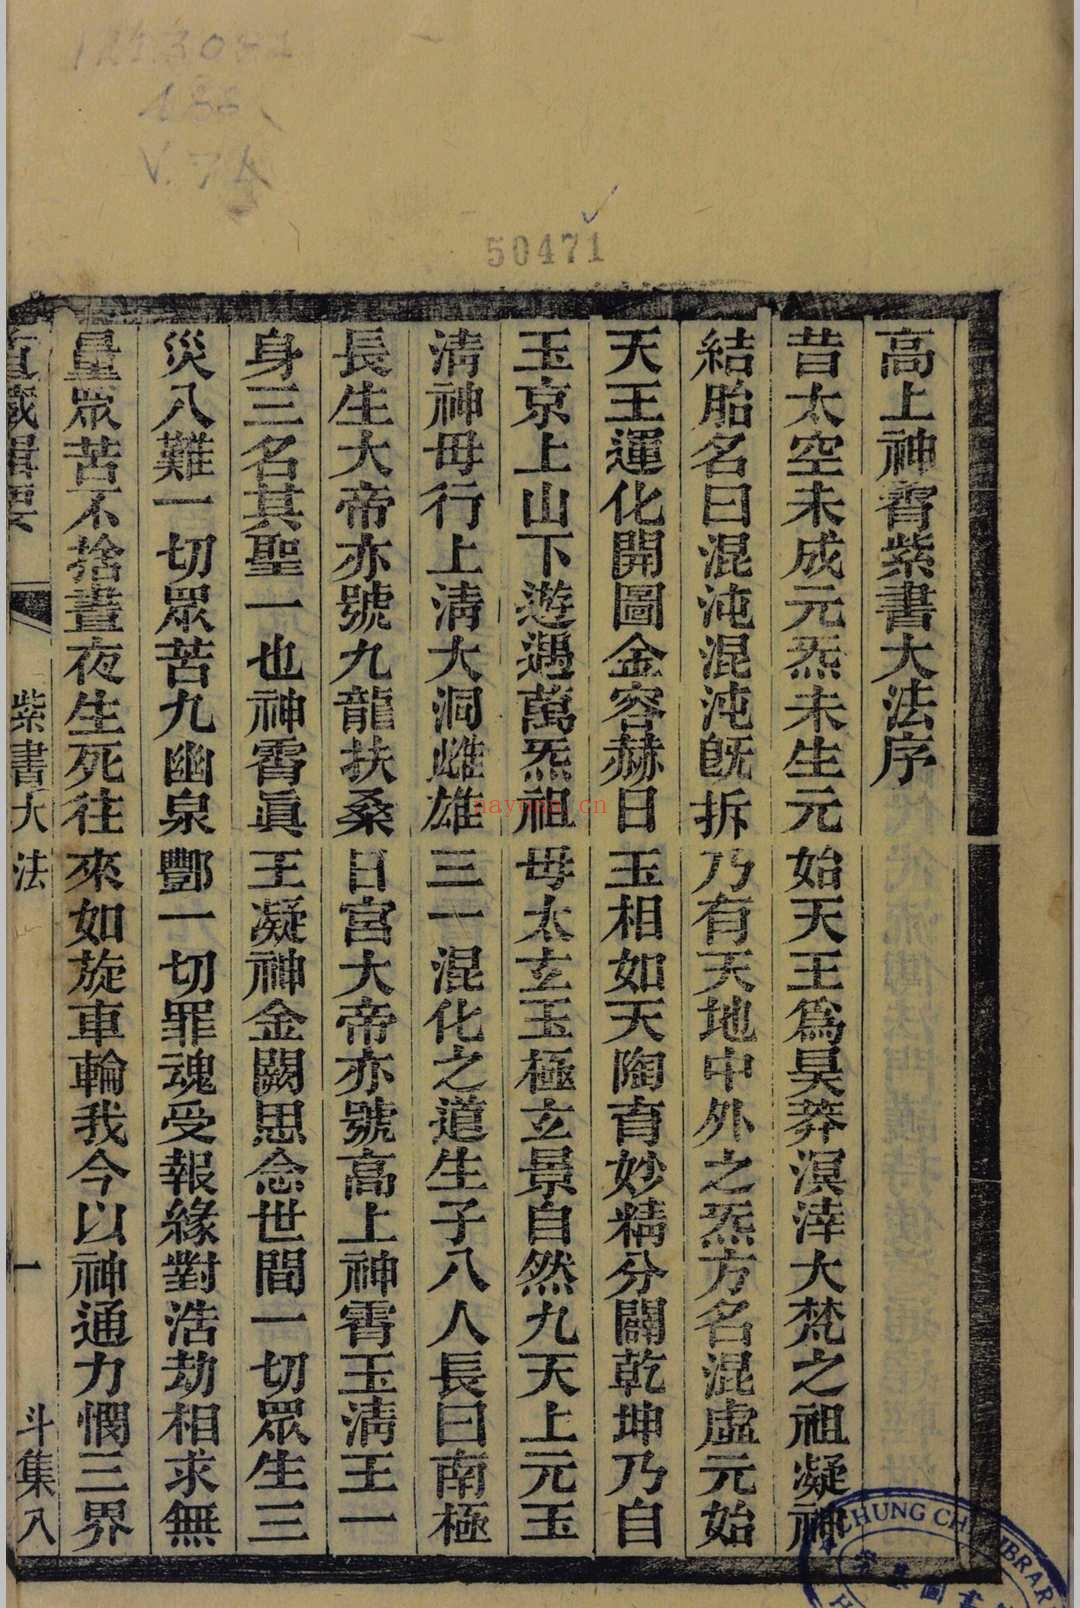 50471
高上神霄紫書大法序
昔太空未成元炁未生元始天王爲昊莽溟涬大梵之祖凝神
結胎名曰混沌混沌旣拆乃有天地中外之炁方名混虛元始
天王運化開圖金容赫日玉相如天陶育妙精分闢乾坤乃自
玉京上山下遊遇萬炁祖母太玄玉極玄景自然九天上元玉
淸神母行上淸大洞雌雄三一混化之道生子八人長曰南極
長生大帝亦號九龍扶桑日宮大帝亦號高上神霄玉淸王一
身三名其聖一也神霄眞王凝神金闕思念世間一切眾生三
災八難一切眾苦九幽泉酆一切罪魂受報緣對浩劫相求無
量眾苦不捨晝夜生死往來如旋車輪我今以神通力憫三界
道藏輯要 紫書大法 一 斗集八
nayona.cn
CHUNG CHI LIBRARY